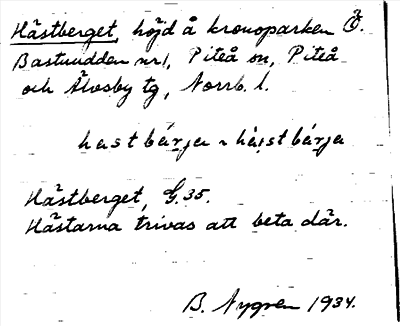 Hästberget, höjd å kronoparken Ö.
Bastuudden nr 1, Piteå sn, Piteå
och Älvsby tg, Norrb. l.
hastbárja ~ häistbárja
Hästberget, G. 35.
Hästarna trivas att beta där.
B. Nygren 1934.